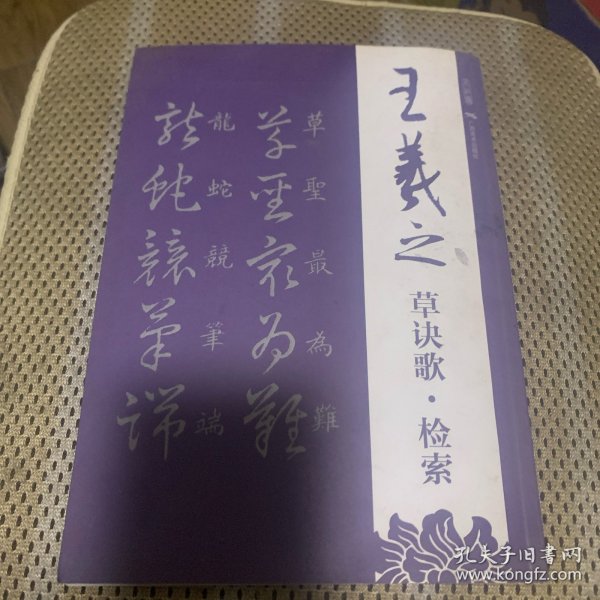 王羲之
草诀歌·检索
草聖最為難
草聖最為難
龍蛇競筆端
龍蛇競筆端
孔夫子旧书网
www.kongfz.com